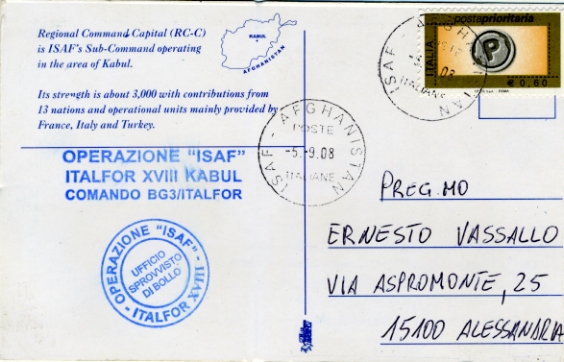 Regional Command Capital (RC-C)
is ISAF's Sub-Command operating
in the area of Kabul.
Its strength is about 3,000 with contributions from
13 nations and operational units mainly provided by
France, Italy and Turkey.
KABUL
AFGHANISTAN
postaprioritaria
ITALIA
P
€ 0,60
ISAF - AFGHANISTAN
POSTE
ITALIANE
ISAF - AFGHANISTAN
POSTE
-5.-9.08
ITALIANE
OPERAZIONE "ISAF"
ITALFOR XVIII KABUL
COMANDO BG3/ITALFOR
OPERAZIONE "ISAF" - ITALFOR XVIII
UFFICIO
SPROVVISTO
DI BOLLO
PREG.MO
ERNESTO VASSALLO
VIA ASPROMONTE, 25
15100 ALESSANDRIA